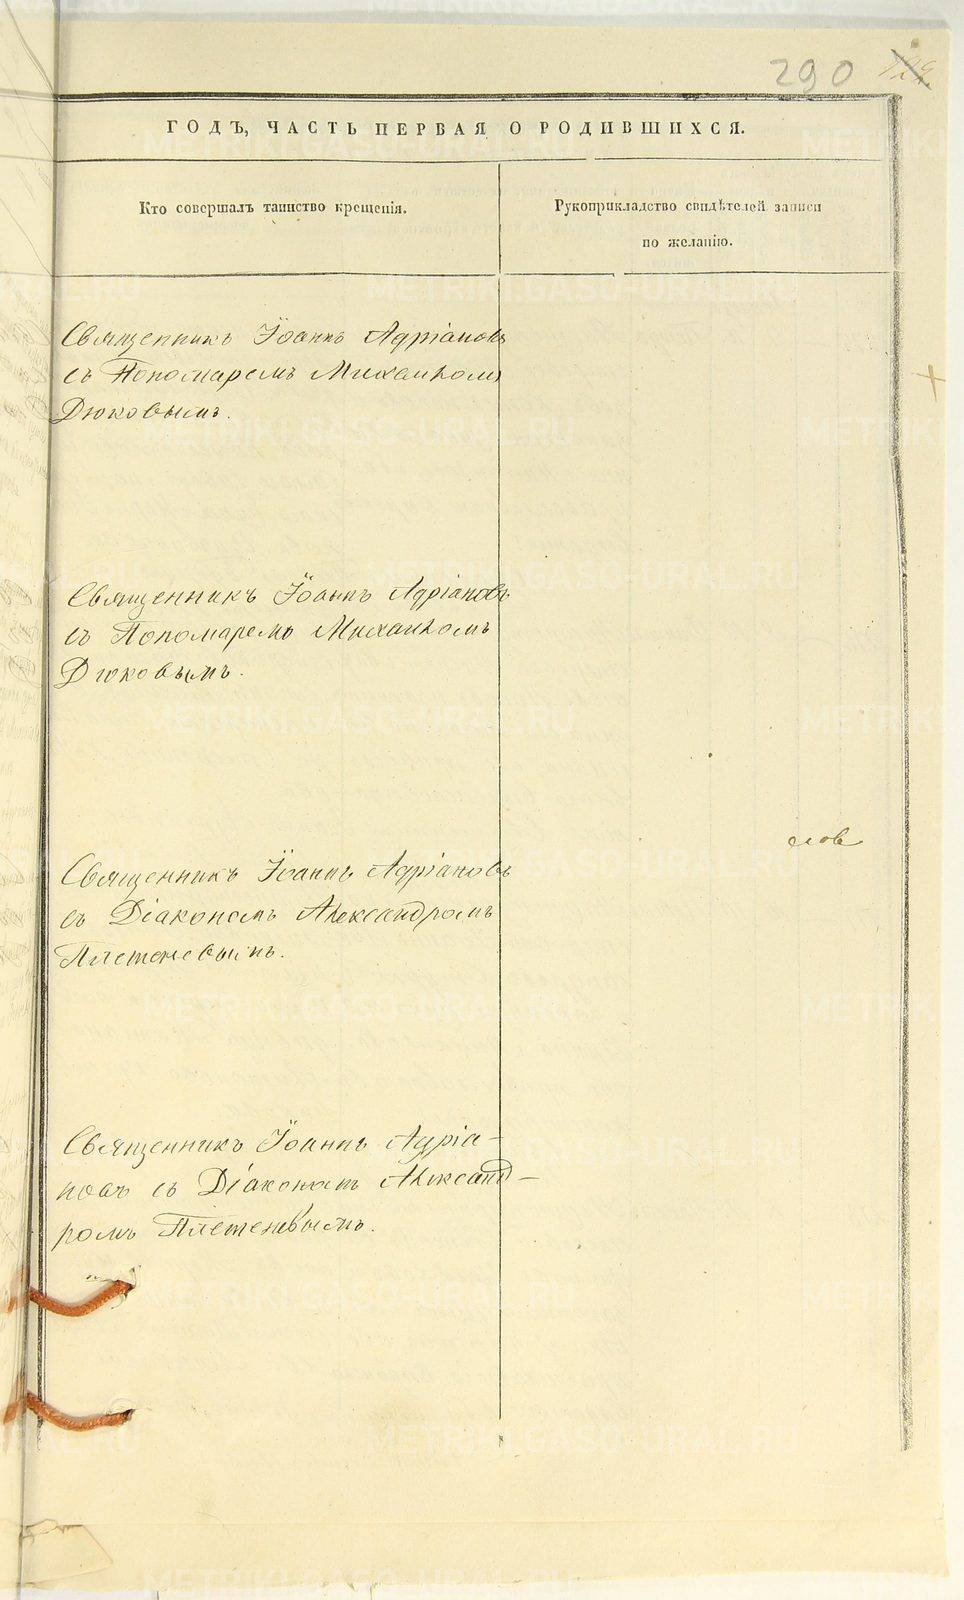 290
ГОДЪ, ЧАСТЬ ПЕРВАЯ О РОДИВШИХСЯ.
Кто совершалъ таинство крещенія.
Рукоприкладство свидѣтелей записи
по желанію.
Священникъ Іоаннъ Адріановъ
съ Пономаремъ Михаиломъ
Дюковымъ.
Священникъ Іоаннъ Адріановъ
съ Пономаремъ Михаиломъ
Дюковымъ.
слов
Священникъ Іоаннъ Адріановъ
съ Діакономъ Александромъ
Плетеневымъ.
Священникъ Іоаннъ Адріа-
новъ съ Діакономъ Александ-
ромъ Плетеневымъ.
METRIKI.GASO-URAL.RU